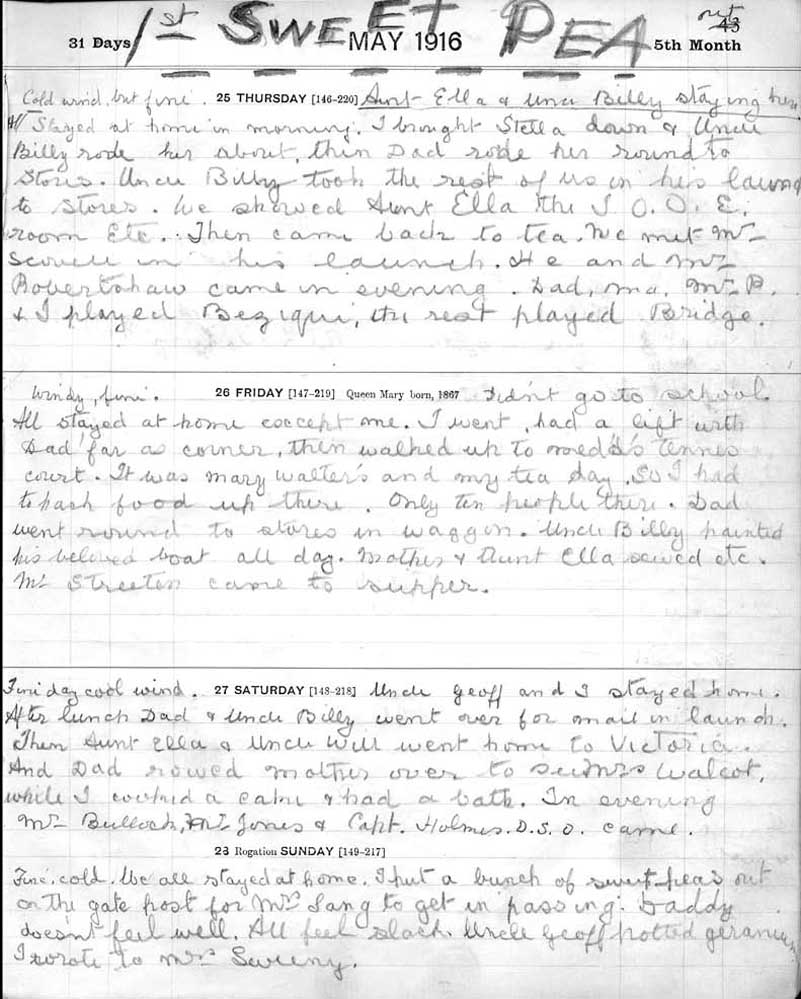 1st SWEET PEA out
31 Days MAY 1916 5th Month 43
Cold wind, but fine. 25 THURSDAY [146-220] Aunt Ella & Uncle Billy staying here
All stayed at home in morning. I brought Stella down & Uncle
Billy rode her about, then Dad rode her round to
Stores. Uncle Billy took the rest of us in his launch
to stores. We showed Aunt Ella the I.O.D.E.
room etc. Then came back to tea. We met Mr
Scovell in his launch. He and Mr
Robertshaw came in evening. Dad, Ma, Mr R.
& I played Bezique, the rest played Bridge.
Windy, fine. 26 FRIDAY [147-219] Queen Mary born, 1867 Didn't go to school.
All stayed at home except me. I went, had a lift with
Dad far as corner, then walked up to tennis
court. It was Mary Walter's and my tea day, so I had
to pack food up there. Only ten people there. Dad
went round to stores in waggon. Uncle Billy painted
his beloved boat all day. Mother & Aunt Ella sewed etc.
Mr Streeten came to supper.
Fine day cool wind. 27 SATURDAY [148-218] Uncle Geoff and I stayed home.
After lunch Dad & Uncle Billy went over for mail in launch.
Then Aunt Ella & Uncle Will went home to Victoria.
And Dad rowed mother over to see Mrs Walcot,
while I cooked a cake & had a bath. In evening
Mr Bullock, Mr Jones & Capt. Holmes. D.S.O. came.
28 Rogation SUNDAY [149-217]
Fine, cold. We all stayed at home. I put a bunch of sweet peas out
on the gate post for Mrs Lang to get in passing. Daddy
doesn't feel well. All feel slack. Uncle Geoff potted geraniums
I wrote to Mrs